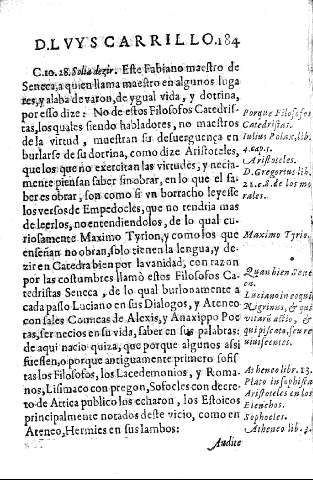 D. LVYS CARRILLO. 184
C. 10. 28. Solia dezir. Este Fabiano maestro de
Seneca, a quien llama maestro en algunos luga
res, y alaba de varon, de ygual vida, y dotrina,
por esso dize: No de estos Filosofos Catedris-
tas, los quales siendo habladores, no maestros
de la virtud, muestran su desuerguença en
burlarse de su dotrina, como dize Aristoteles,
que los que no exercitan las virtudes, y necia-
mente piensan saber sin obrar, en lo que el sa-
ber es obrar, son como si vn borracho leyesse
los versos de Empedocles, que no tendria mas
de leerlos, no entendiendolos, de lo qual cu-
riosamente Maximo Tyrio, y como los que
enseñan no obran, solo tienen la lengua, y de-
zir en Catedra bien por la vanidad, con razon
por las costumbres llamò estos Filosofos Ca-
tedristas Seneca, de lo qual burlonamente a
cada passo Luciano en sus Dialogos, y Ateneo
con sales Comicas de Alexis, y Anaxippo Poe
tas, ser necios en su vida, saber en sus palabras:
de aqui nacio quiza, que porque algunos assi
fuessen, o porque antiguamente primero sofis
tas los Filosofos, los Lacedemonios, y Roma-
nos, Lisimaco con pregon, Sofocles con decre-
to de Attica publico los echaron, los Estoicos
principalmente notados deste vicio, como en
Ateneo, Hermies en sus Iambos:
Audite
Porque Filosofos
Catedristas.
Iulius Polax, lib.
4. cap. 5.
Aristoteles.
D. Gregorius lib.
21. c. 8. de los mo
rales.
Maximo Tyrio.
Quan bien Sene
ca.
Luciano in
Nigrinus, &
Atheneo lib. 13.
Plato in sophista
Aristoteles en los
Elenchos.
Sophocles.
Atheneo lib.